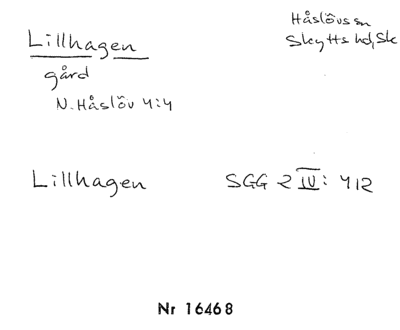 Lillhagen
Håslövs sn
Skytts hd, Sk
gård
N. Håslöv 4:4
Lillhagen
SGG 2 IV: 412
Nr 16468